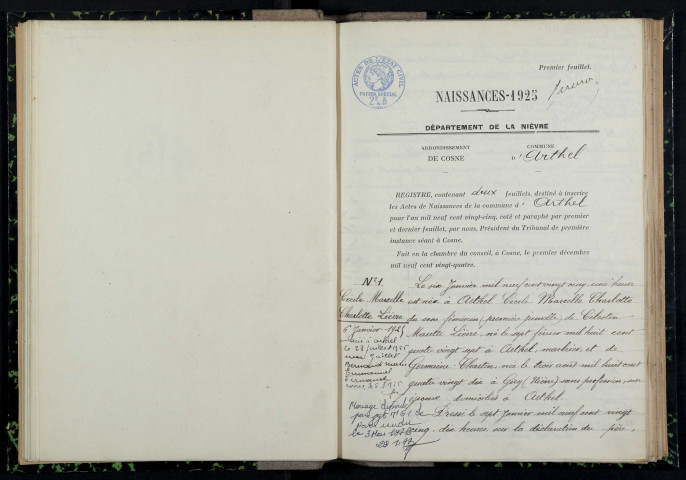 Premier feuillet.
ACTES DE L'ÉTAT CIVIL
PAPIER SPÉCIAL
NAISSANCES-1925
DÉPARTEMENT DE LA NIÈVRE
ARRONDISSEMENT
DE COSNE
COMMUNE
D'Arthel
REGISTRE, contenant deux feuillets, destiné à inscrire
les Actes de Naissances de la commune d'Arthel
pour l'an mil neuf cent vingt-cinq, coté et paraphé par premier
et dernier feuillet, par nous, Président du Tribunal de première
instance séant à Cosne.
Fait en la chambre du conseil, à Cosne, le premier décembre
mil neuf cent vingt-quatre.
N° 1
Cécile Marcelle
Charlotte Lièvre
6 Janvier 1925
Le six Janvier mil neuf cent vingt cinq heures
est née à Arthel Cécile Marcelle Charlotte
du sexe féminin (première jumelle) de Célestin
Lièvre, né le sept février mil huit cent
quatre vingt sept à Arthel, et de
Germaine né le trois août mil huit cent
quatre vingt dix à Giry (Nièvre) sans profession, son
épouse domiciliés à Arthel.
Dressé le sept Janvier mil neuf cent vingt
cinq, dix heures, sur la déclaration du père,
le 28 juillet
Bernard
Emmanuel
Mariage
le 3 Mai